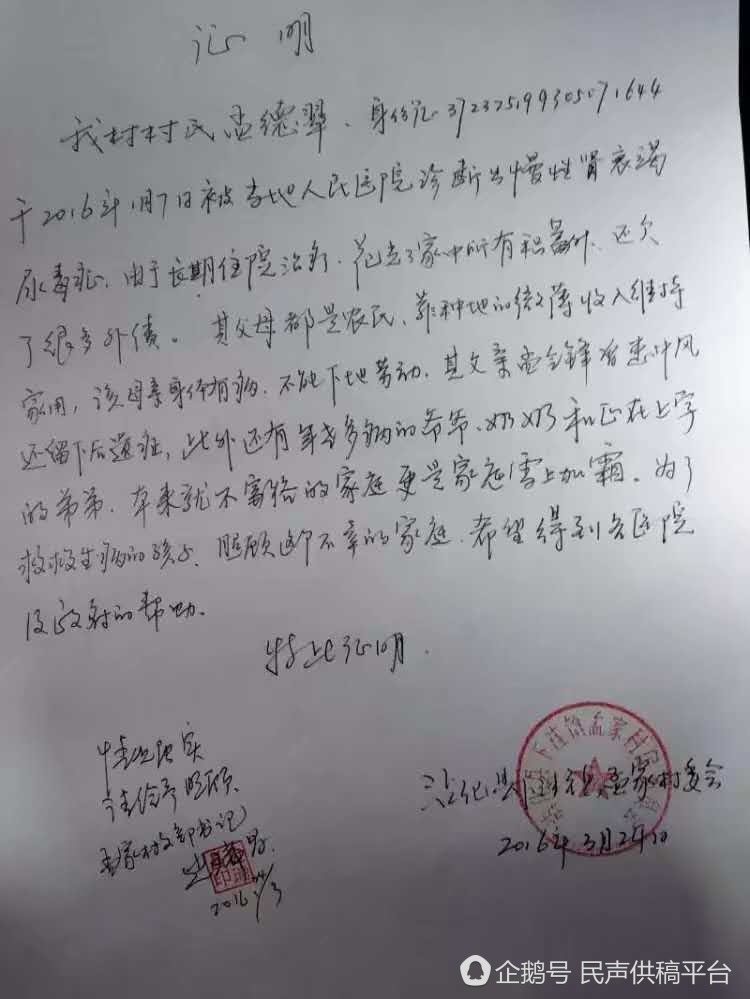 证明
我村村民孟德翠、身份证372325199305071644
于2016年1月7日被当地人民医院诊断出慢性肾衰竭
尿毒症、由于长期住院治疗、花去了家中所有积蓄外、还欠
了很多外债。其父母都是农民、靠种地的微薄收入维持
家用，该母亲身体有病、不能下地劳动、其父亲孟金锋有患中风
还留下后遗症，此外还有年老多病的爷爷、奶奶和正在上学
的弟弟、本来就不富裕的家庭更是家庭雪上加霜。为了
救救生病的孩子、照顾这个不幸的家庭、希望得到各医院
及政府的帮助。
特此证明.
情况属实
请给予照顾
孟家村支部书记
2016 4/3
下洼镇孟家村民委员会
沾化县下洼镇孟家村委会
2016年3月2日
企鹅号 民声供稿平台